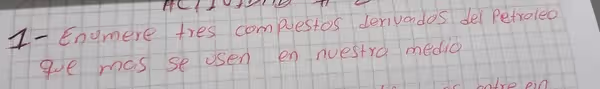 1- Enumere tres compuestos derivados del Petroleo
que mas se usen en nuestra medio